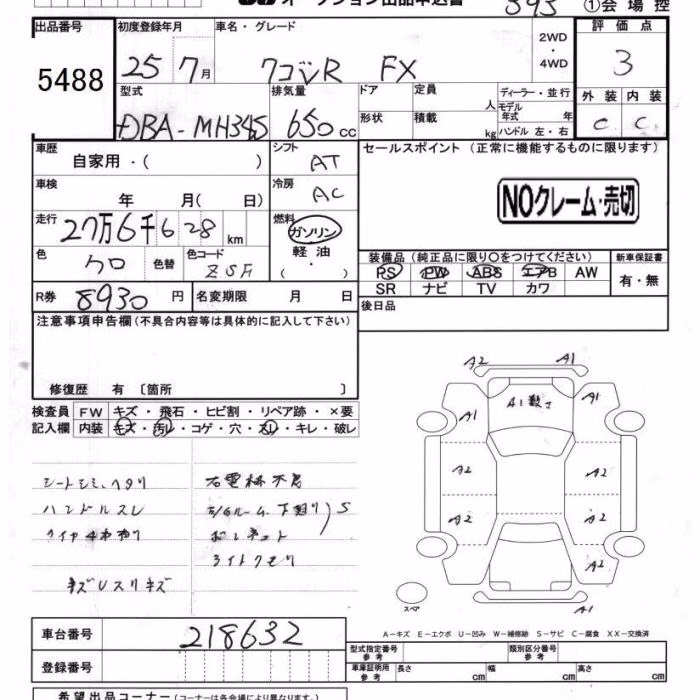 オークション出品申込書 393 ①会場控
出品番号 初度登録年月 車名・グレード 2WD ・ 4WD 評価点
5488 25 7月 ワゴンR FX 3
型式 排気量 ドア 定員 人 ディーラー・並行 外装 内装
DBA-MH34S 650cc 形状 積載 kg モデル年式 年 ハンドル 左・右 C C
車歴 自家用・( ) シフト AT セールスポイント (正常に機能するものに限ります)
車検 年 月( 日) 冷房 AC NOクレーム・売切
走行 27万6千628km 燃料 ガソリン 軽油 ( ・ )
色 クロ 色替 色コード ZSF 装備品 (純正品に限り○をつけてください) 新車保証書
PS PW ABS エアB AW 有・無
SR ナビ TV カワ
R券 8930円 名変期限 月 日 後日品
注意事項申告欄 (不具合内容等は具体的に記入して下さい)
修復歴 有 〔箇所 〕
検査員 FW キズ・飛石・ヒビ割・リペア跡・×要
記入欄 内装 キズ・汚レ・コゲ・穴・スレ・キレ・破レ
シートシミ、ヘタリ
ハンドルスレ
タイヤ4本
キズUスリキズ
下廻り S
ボンネット
ライトクモリ
A2 A1
A1 A1 A1
A2 A2
A2 A2
A2
A1
スペア
A-キズ E-エクボ U-凹み W-補修跡 S-サビ C-腐食 XX-交換済
車台番号 218632
登録番号
型式指定番号 参考 類別区分番号 参考
車庫証明用 参考 長さ cm 幅 cm 高さ cm
希望出品コーナー (コーナーは各会場により異なります。)